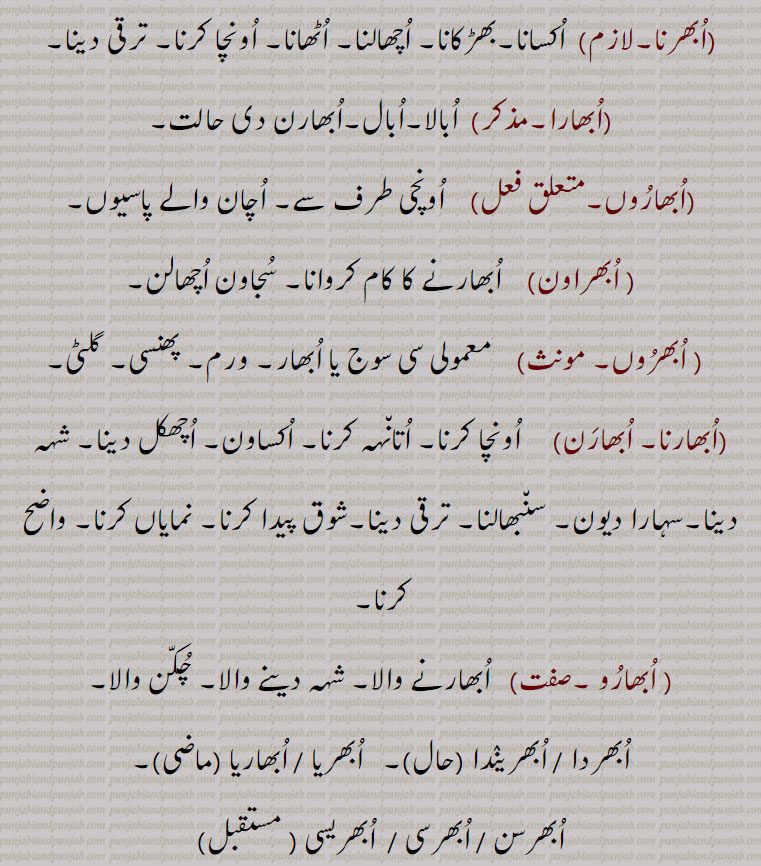 (اُبھرنا۔لازم) اُکسانا۔بھڑکانا۔ اُچھالنا۔ اُٹھانا۔ اُونچا کرنا۔ ترقی دینا۔
(اُبھارا۔مذکر) اُبالا۔اُبال۔اُبھارن دی حالت۔
(اُبھارُوں۔متعلق فعل) اُونچی طرف سے۔ اُچان والے پاسیوں۔
( اُبھراون) اُبھارنے کا کام کروانا۔ سُجاون اُچھالن۔
( اُبھرُوں۔ مونث) معمولی سی سوج یا اُبھار۔ ورم۔ پھنسی۔ گلٹی۔
(اُبھارنا۔ اُبھارَن) اُونچا کرنا۔ اُتانہہ کرنا۔ اُکساون۔ اُچھکل دینا۔ شہہ
دینا۔سہارا دیون۔ سنّبھالنا۔ ترقی دینا۔شوق پیدا کرنا۔ نمایاں کرنا۔ واضح
کرنا۔
( اُبھارُو ۔صفت) اُبھارنے والا۔ شہہ دینے والا۔ چُکّن والا۔
اُبھردا / اُبھرینْدا (حال)۔ اُبھریا / اُبھاریا (ماضی)۔
اُبھرسن / اُبھرسی / اُبھریسی ( مستقبل)
punjabiandpunjab.com